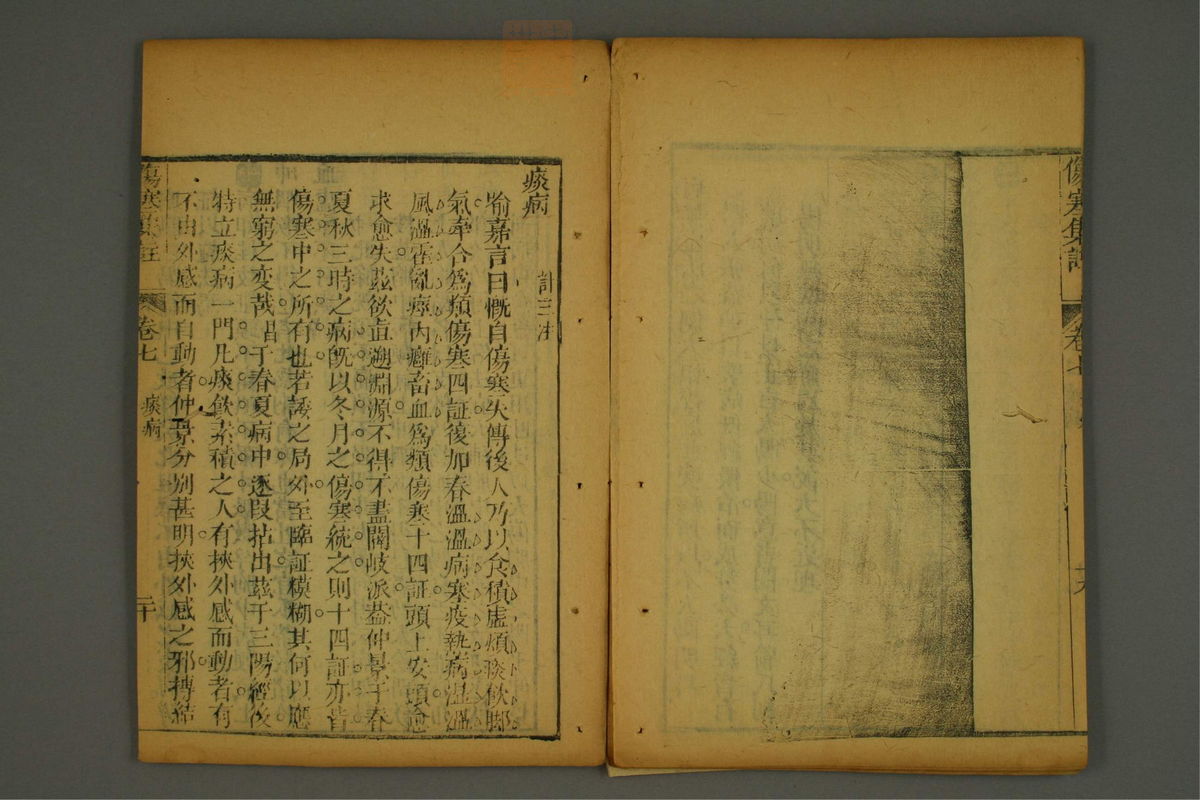 傷寒集註
卷七
痰病
計三法
喻嘉言曰慨自傷寒失傳後人乃以食積虛煩痰飲脚
氣牽合爲類傷寒四証後加春溫溫病寒疫熱病濕溫
風溫霍亂痙內癰畜血爲類傷寒十四証頭上安頭愈
求愈失茲欲直遡淵源不得不盡闢岐派葢仲景于春
夏秋三時之病旣以冬月之傷寒統之則十四証亦皆
傷寒中之所有也若諉之局外至臨証糢糊其何以應
無窮之変哉昌于春夏病中逐段拈出茲于三陽經後
特立痰病一門凡痰飲素積之人有挾外感而動者有
不由外感而自動者仲景分別甚明挾外感之邪搏結
傷寒集註
卷七
痰病
二十